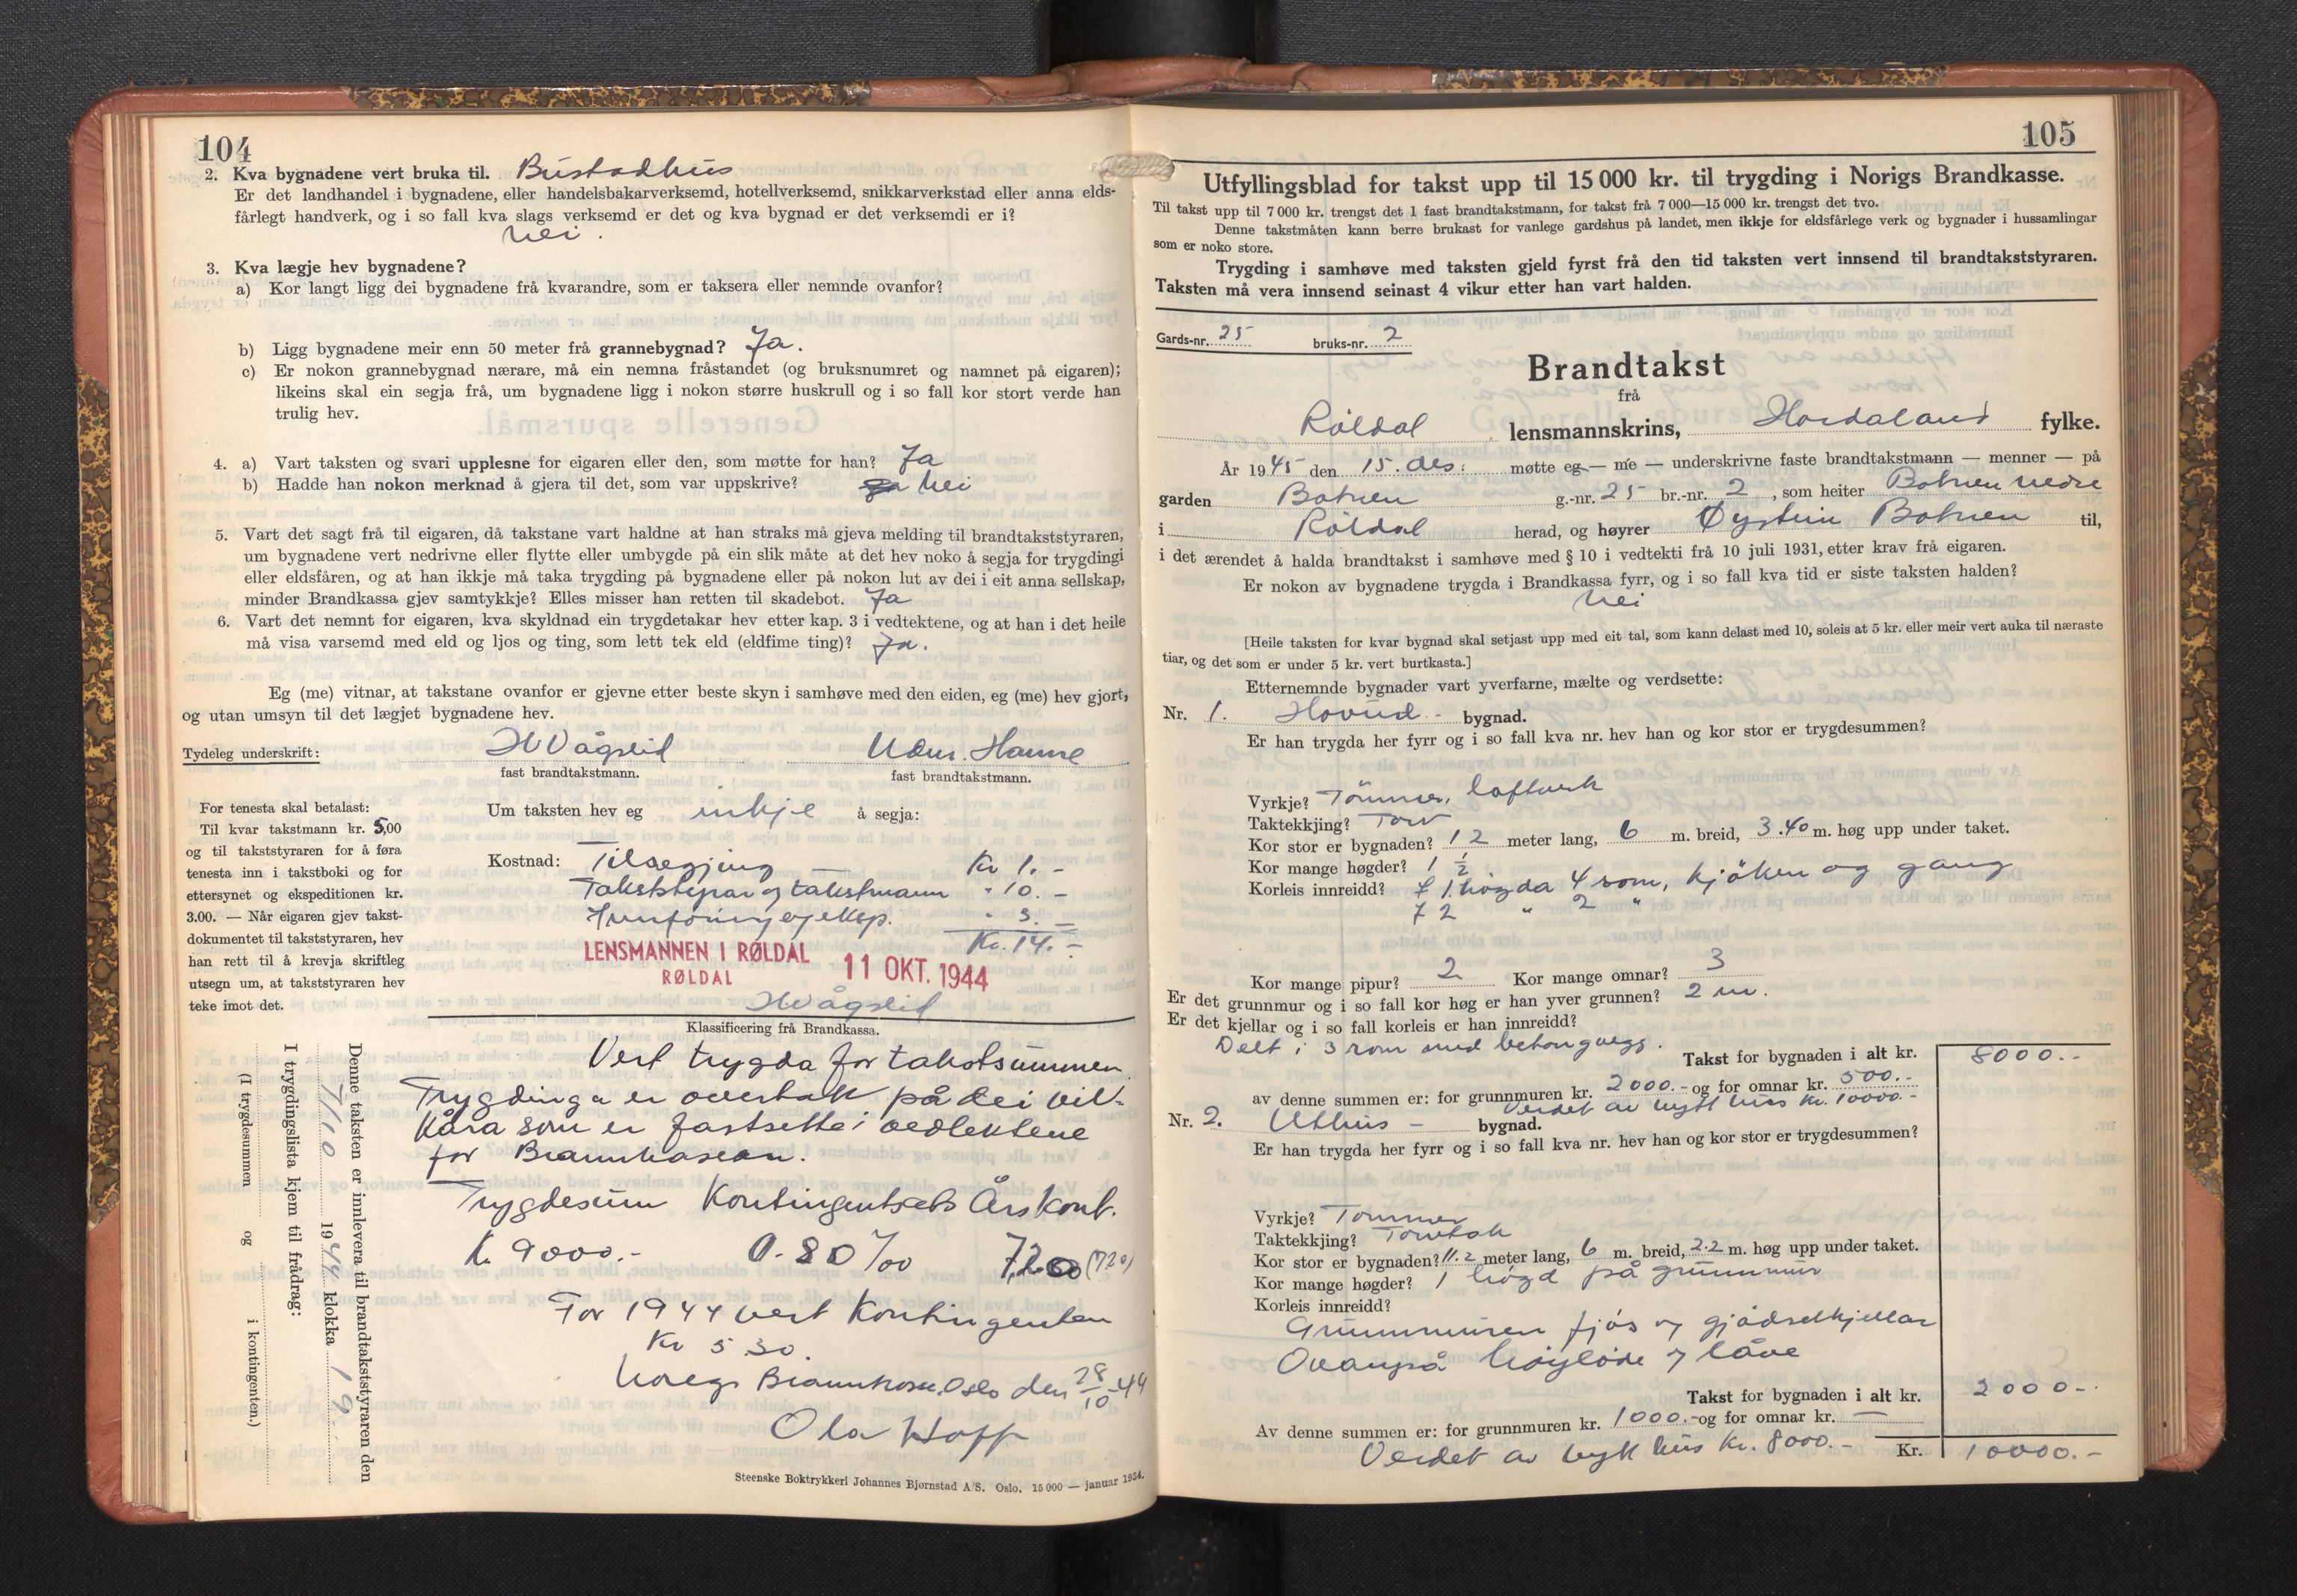 104
2. Kva bygnadene vert bruka til. Bustadhus
Er det landhandel i bygnadene, eller handelsbakarverksemd, hotellverksemd, snikkarverkstad eller anna elds-
fårlegt handverk, og i so fall kva slags verksemd er det og kva bygnad er det verksemdi er i?
Nei.
3. Kva lægje hev bygnadene?
a) Kor langt ligg dei bygnadene frå kvarandre, som er taksera eller nemnde ovanfor?
b) Ligg bygnadene meir enn 50 meter frå grannebygnad? Ja.
c) Er nokon grannebygnad nærare, må ein nemna fråstandet (og bruksnumret og namnet på eigaren);
likeins skal ein segja frå, um bygnadene ligg i nokon større huskrull og i so fall kor stort verde han
trulig hev.
4. a) Vart taksten og svari upplesne for eigaren eller den, som møtte for han? Ja
b) Hadde han nokon merknad å gjera til det, som var uppskrive? Nei
5. Vart det sagt frå til eigaren, då takstane vart haldne at han straks må gjeva melding til brandtakststyraren,
um bygnadene vert nedrivne eller flytte eller umbygde på ein slik måte at det hev noko å segja for trygdingi
eller eldsfåren, og at han ikkje må taka trygding på bygnadene eller på nokon lut av dei i eit anna sellskap,
minder Brandkassa gjev samtykkje? Elles misser han retten til skadebot. Ja
6. Vart det nemnt for eigaren, kva skyldnad ein trygdetakar hev etter kap. 3 i vedtektene, og at han i det heile
må visa varsemd med eld og ljos og ting, som lett tek eld (eldfime ting)? Ja.
Eg (me) vitnar, at takstane ovanfor er gjevne etter beste skyn i samhøve med den eiden, eg (me) hev gjort,
og utan umsyn til det lægjet bygnadene hev.
Tydeleg underskrift: H Vågslid
fast brandtakstmann. fast brandtakstmann.
For tenesta skal betalast:
Til kvar takstmann kr. 5,00
og til takststyraren for å føra
tenesta inn i takstboki og for
ettersynet og ekspeditionen kr.
3.00. — Når eigaren gjev takst-
dokumentet til takststyraren, hev
han rett til å krevja skriftleg
utsegn um, at takststyraren hev
teke imot det.
Um taksten hev eg inkje å segja:
Kostnad: Tilsegjing Kr 1.-
Takststyrar og takstmann " 10.-
Innføring og eksp. " 3.-
Kr. 14.-
LENSMANNEN I RØLDAL
RØLDAL
11 OKT. 1944
H Vågslid
Klassificering frå Brandkassa.
Vert trygda for takstsummen.
Trygdinga er overtak på dei vil-
kåra som er fastsette i vedtektene
for Brannkassen.
Trygdesum Kontingentsats Årskont.
K. 9000.- 0.80 ‰ 7,20 (7.20)
For 1944 vert Kontingenten
Kr 5.30.
Noregs Brannkasse, Oslo den 28/10-44
Ola Hopp
Denne taksten er innlevera til brandtakststyraren den
7/10 1944 klokka 19
I trygdingslista kjem til frådrag:
(I trygdesummen og i kontingenten.)
Steenske Boktrykkeri Johannes Bjørnstad A/S. Oslo. 15 000 — januar 1934.
105
Utfyllingsblad for takst upp til 15 000 kr. til trygding i Norigs Brandkasse.
Til takst upp til 7 000 kr. trengst det 1 fast brandtakstmann, for takst frå 7 000—15 000 kr. trengst det tvo.
Denne takstmåten kann berre brukast for vanlege gardshus på landet, men ikkje for eldsfårlege verk og bygnader i hussamlingar
som er noko store.
Trygding i samhøve med taksten gjeld fyrst frå den tid taksten vert innsend til brandtakststyraren.
Taksten må vera innsend seinast 4 vikur etter han vart halden.
Gards-nr. 25 bruks-nr. 2
Brandtakst
frå
Röldal lensmannskrins, Hordaland fylke.
År 1945 den 15. des. møtte eg — me — underskrivne faste brandtakstmann — menner — på
garden Botnen g.-nr. 25 br.-nr. 2, som heiter Botnen nedre
i Röldal herad, og høyrer Øystein Botnen til,
i det ærendet å halda brandtakst i samhøve med § 10 i vedtekti frå 10 juli 1931, etter krav frå eigaren.
Er nokon av bygnadene trygda i Brandkassa fyrr, og i so fall kva tid er siste taksten halden?
Nei
[Heile taksten for kvar bygnad skal setjast upp med eit tal, som kann delast med 10, soleis at 5 kr. eller meir vert auka til næraste
tiar, og det som er under 5 kr. vert burtkasta.]
Etternemnde bygnader vart yverfarne, mælte og verdsette:
Nr. 1. Hovud- bygnad.
Er han trygda her fyrr og i so fall kva nr. hev han og kor stor er trygdesummen?
Vyrkje? Tömmer, laftverk
Taktekkjing? Torv
Kor stor er bygnaden? 12 meter lang, 6 m. breid, 3.40 m. høg upp under taket.
Kor mange høgder? 1 1/2
Korleis innreidd? I 1. högda 4 rom, kjöken og gang
I 2 " 2 "
Kor mange pipur? 2 Kor mange omnar? 3
Er det grunnmur og i so fall kor høg er han yver grunnen? 2 m.
Er det kjellar og i so fall korleis er han innreidd?
Delt i 3 rom med betongvegg.
Takst for bygnaden i alt kr. 8000.-
av denne summen er: for grunnmuren kr. 2000.- og for omnar kr. 500.-
Verdet av nytt hus kr. 10000.-
Nr. 2. Uthus - bygnad.
Er han trygda her fyrr og i so fall kva nr. hev han og kor stor er trygdesummen?
Vyrkje? Tömmer
Taktekkjing? Torvtak
Kor stor er bygnaden? 11.2 meter lang, 6 m. breid, 2.2 m. høg upp under taket.
Kor mange høgder? 1 högd på grunnmur
Korleis innreidd?
Grunnmuren fjös og gjödselkjellar
Ovanpå höyløde og låve
Takst for bygnaden i alt kr. 2000-
Av denne summen er: for grunnmuren kr. 1000.- og for omnar kr. —
Verdet av nytt hus kr. 8000.- Kr. 10000.-